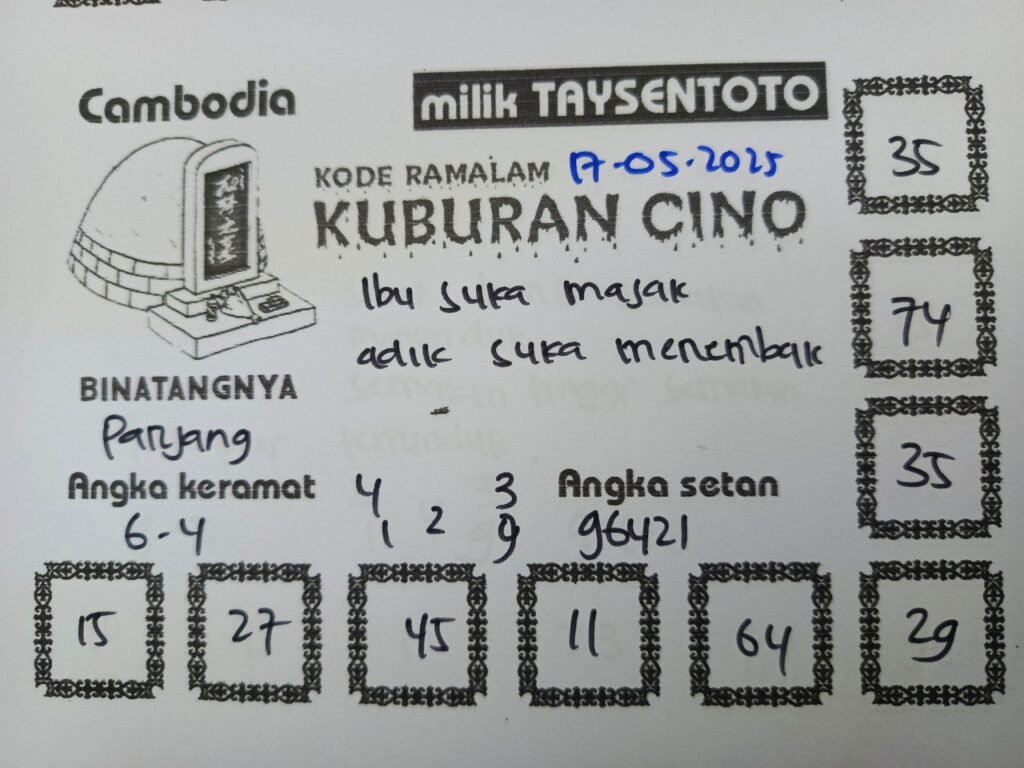 Cambodia
milik TAYSENTOTO
35
KODE RAMALAM 17-05-2025
KUBURAN CINO
Ibu suka masak
74
adik suka menembak
BINATANGNYA
Panjang
35
Angka keramat
4 3
Angka setan
6-4
1 2 9
96421
15 27 45 11 64 29